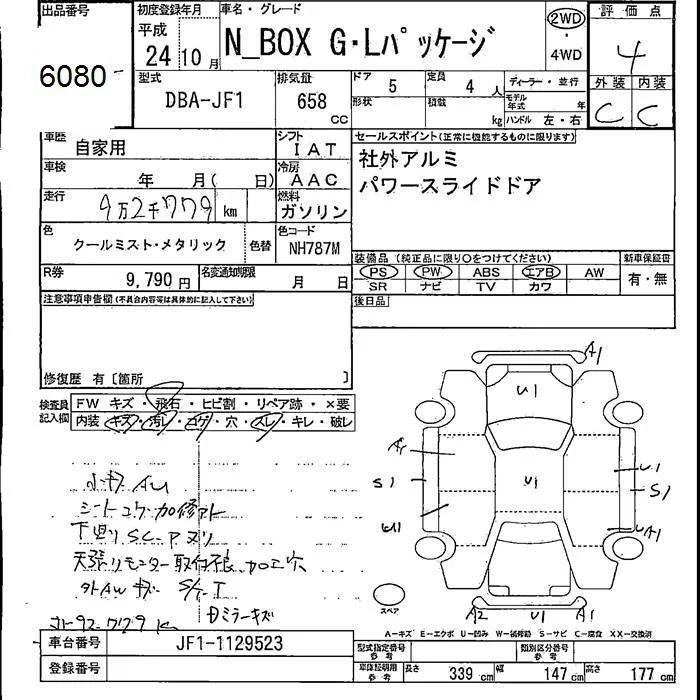 出品番号
6080
初度登録年月
平成
24 10 月
車名・グレード
N_BOX G・Lパッケージ
2WD
・
4WD
評価点
4
外装 内装
C C
型式
DBA-JF1
排気量
658
CC
ドア
5
定員
4 人
形状
積載
kg
ディーラー・並行
モデル年式 年
ハンドル 左・右
車歴
自家用
シフト
IAT
車検
年 月( 日)
冷房
AAC
走行
9万2千779 km
燃料
ガソリン
色
クールミスト・メタリック
色替
色コード
NH787M
R券
9,790 円
名変通知期限
月 日
セールスポイント(正常に機能するものに限ります)
社外アルミ
パワースライドドア
装備品 (純正品に限り○をつけてください)
PS PW ABS エアB AW
SR ナビ TV カワ
新車保証書
有・無
後日品
注意事項申告欄(不具合内容等は具体的に記入して下さい)
修復歴 有〔箇所 〕
検査員
記入欄
FW キズ・飛石・ヒビ割・リペア跡・×要
内装 キズ・汚レ・コゲ・穴・スレ・キレ・破レ
小キズ AU
下廻り SC-Pヌリ
天張りモニター取付痕 加工穴
外AW キズ S/T
Dミラーキズ
92779 k
A1
U1
S1
U1
U1
S1
A1
A2
U1
A1
スペア
A-キズ E-エクボ U-凹み W-補修跡 S-サビ C-腐食 XX-交換済
車台番号
JF1-1129523
登録番号
型式指定番号
参考
類別区分番号
参考
車庫証明用
参考
長さ 339 cm
幅 147 cm
高さ 177 cm